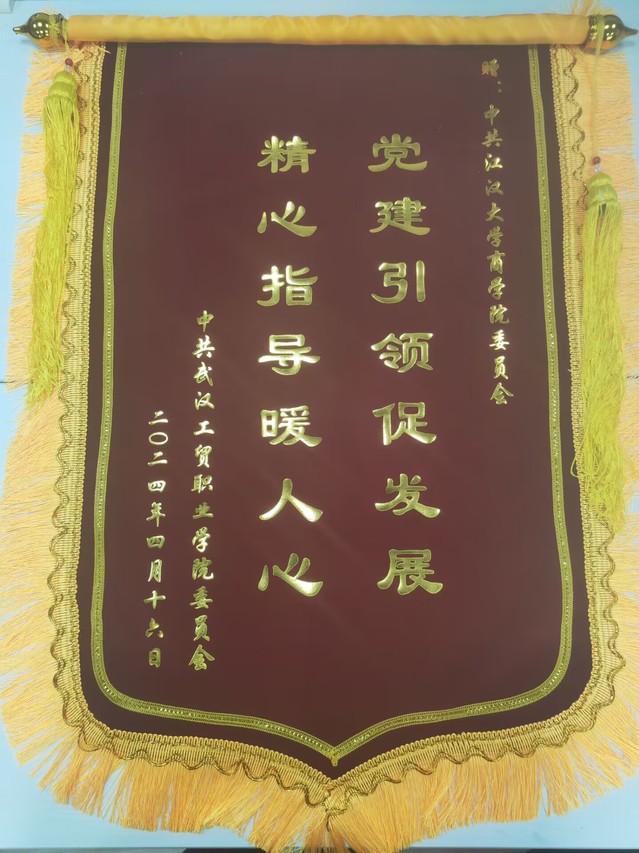 赠：中共江汉大学商学院委员会
党建引领促发展
精心指导暖人心
中共武汉工贸职业学院委员会
二〇二四年四月十六日